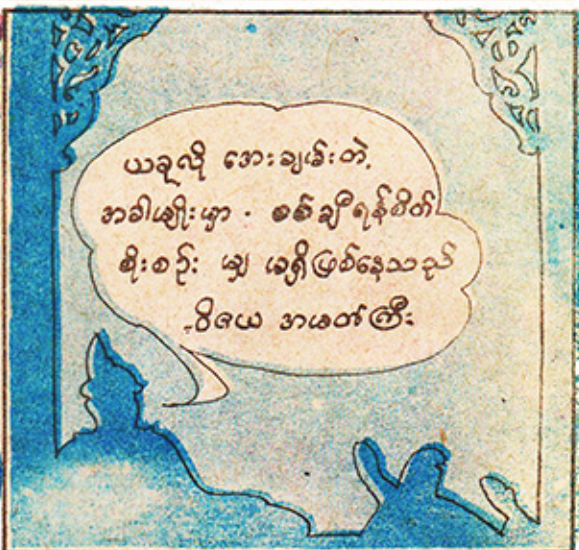 ယခုလို အေးချမ်းတဲ့
အခါမျိုးမှာ . စစ်ချီရန်စိတ်
စိုးစဉ်း မျှ မရှိဖြစ်နေသည်
ဝိဇယ အမတ်ကြီး